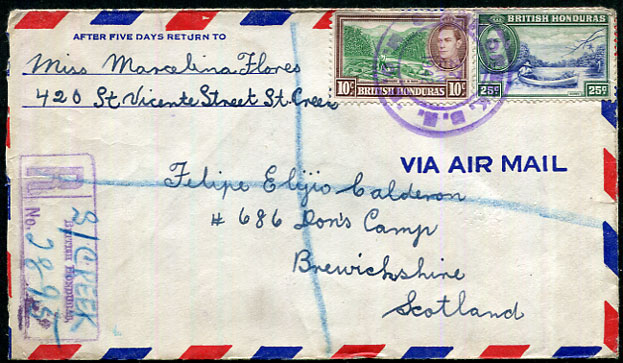 AFTER FIVE DAYS RETURN TO
Miss Marcelina Flores
420 St Vicente Street St. Creek
10c BRITISH HONDURAS 10c
BRITISH HONDURAS
25c 25c
VIA AIR MAIL
Felipe Elijio Calderon
# 686 Don's Camp
Brewickshire
Scotland
R
St CREEK
BRITISH HONDURAS.
No. 2895